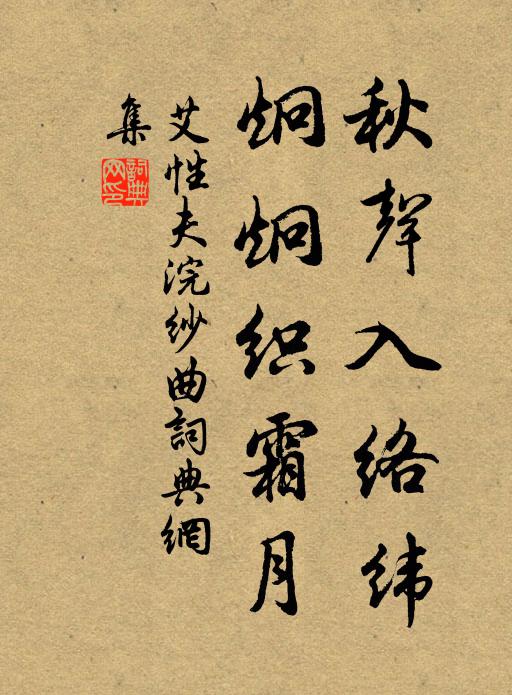 秋聲入络纬
炯炯织霜月
艾性夫浣纱曲詞典網
集
詞典网印